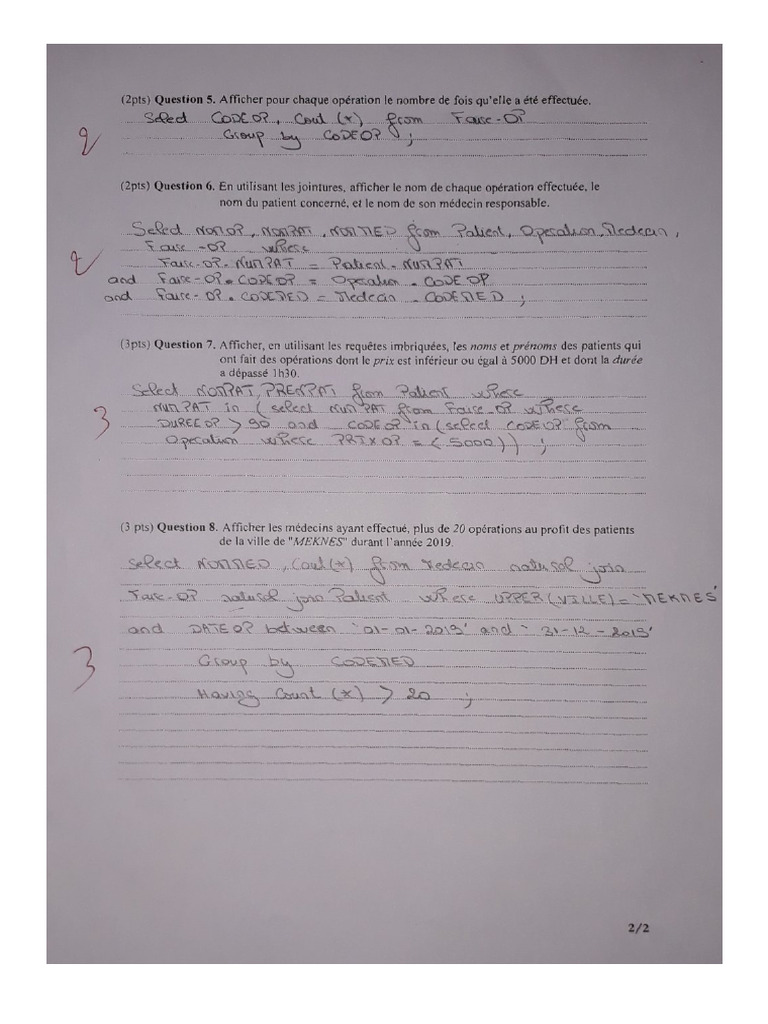 (2pts) Question 5. Afficher pour chaque opération le nombre de fois qu'elle a été effectuée.
Select CODEOP, Cout (*) from Faire-OP
Group by CODEOP ;
2
(2pts) Question 6. En utilisant les jointures, afficher le nom de chaque opération effectuée, le
nom du patient concerné, et le nom de son médecin responsable.
Select NOMOP, NOMPAT, NOMMED from Patient, Operation, Medecin,
Faire-OP where
Faire-OP.NUMPAT = Patient.NUMPAT
2
and Faire-OP.CODEOP = Operation.CODEOP
and Faire-OP.CODEMED = Medecin.CODEMED ;
(3pts) Question 7. Afficher, en utilisant les requêtes imbriquées, les noms et prénoms des patients qui
ont fait des opérations dont le prix est inférieur ou égal à 5000 DH et dont la durée
a dépassé 1h30.
Select NOMPAT, PREMPAT from Patient where
NUMPAT in (select NUMPAT from Faire-OP where
3
DUREEOP > 90 and CODEOP in (select CODEOP from
Operation where PRIXOP =< 5000)) ;
(3 pts) Question 8. Afficher les médecins ayant effectué, plus de 20 opérations au profit des patients
de la ville de "MEKNES" durant l'année 2019.
Select NOMMED, Cout(*) from Medecin natural join
Faire-OP natural join Patient where UPPER(VILLE)= 'MEKNES'
and DATEOP between '01-01-2019' and '31-12-2019'
3
Group by CODEMED
Having Count (*) > 20 ;
2/2